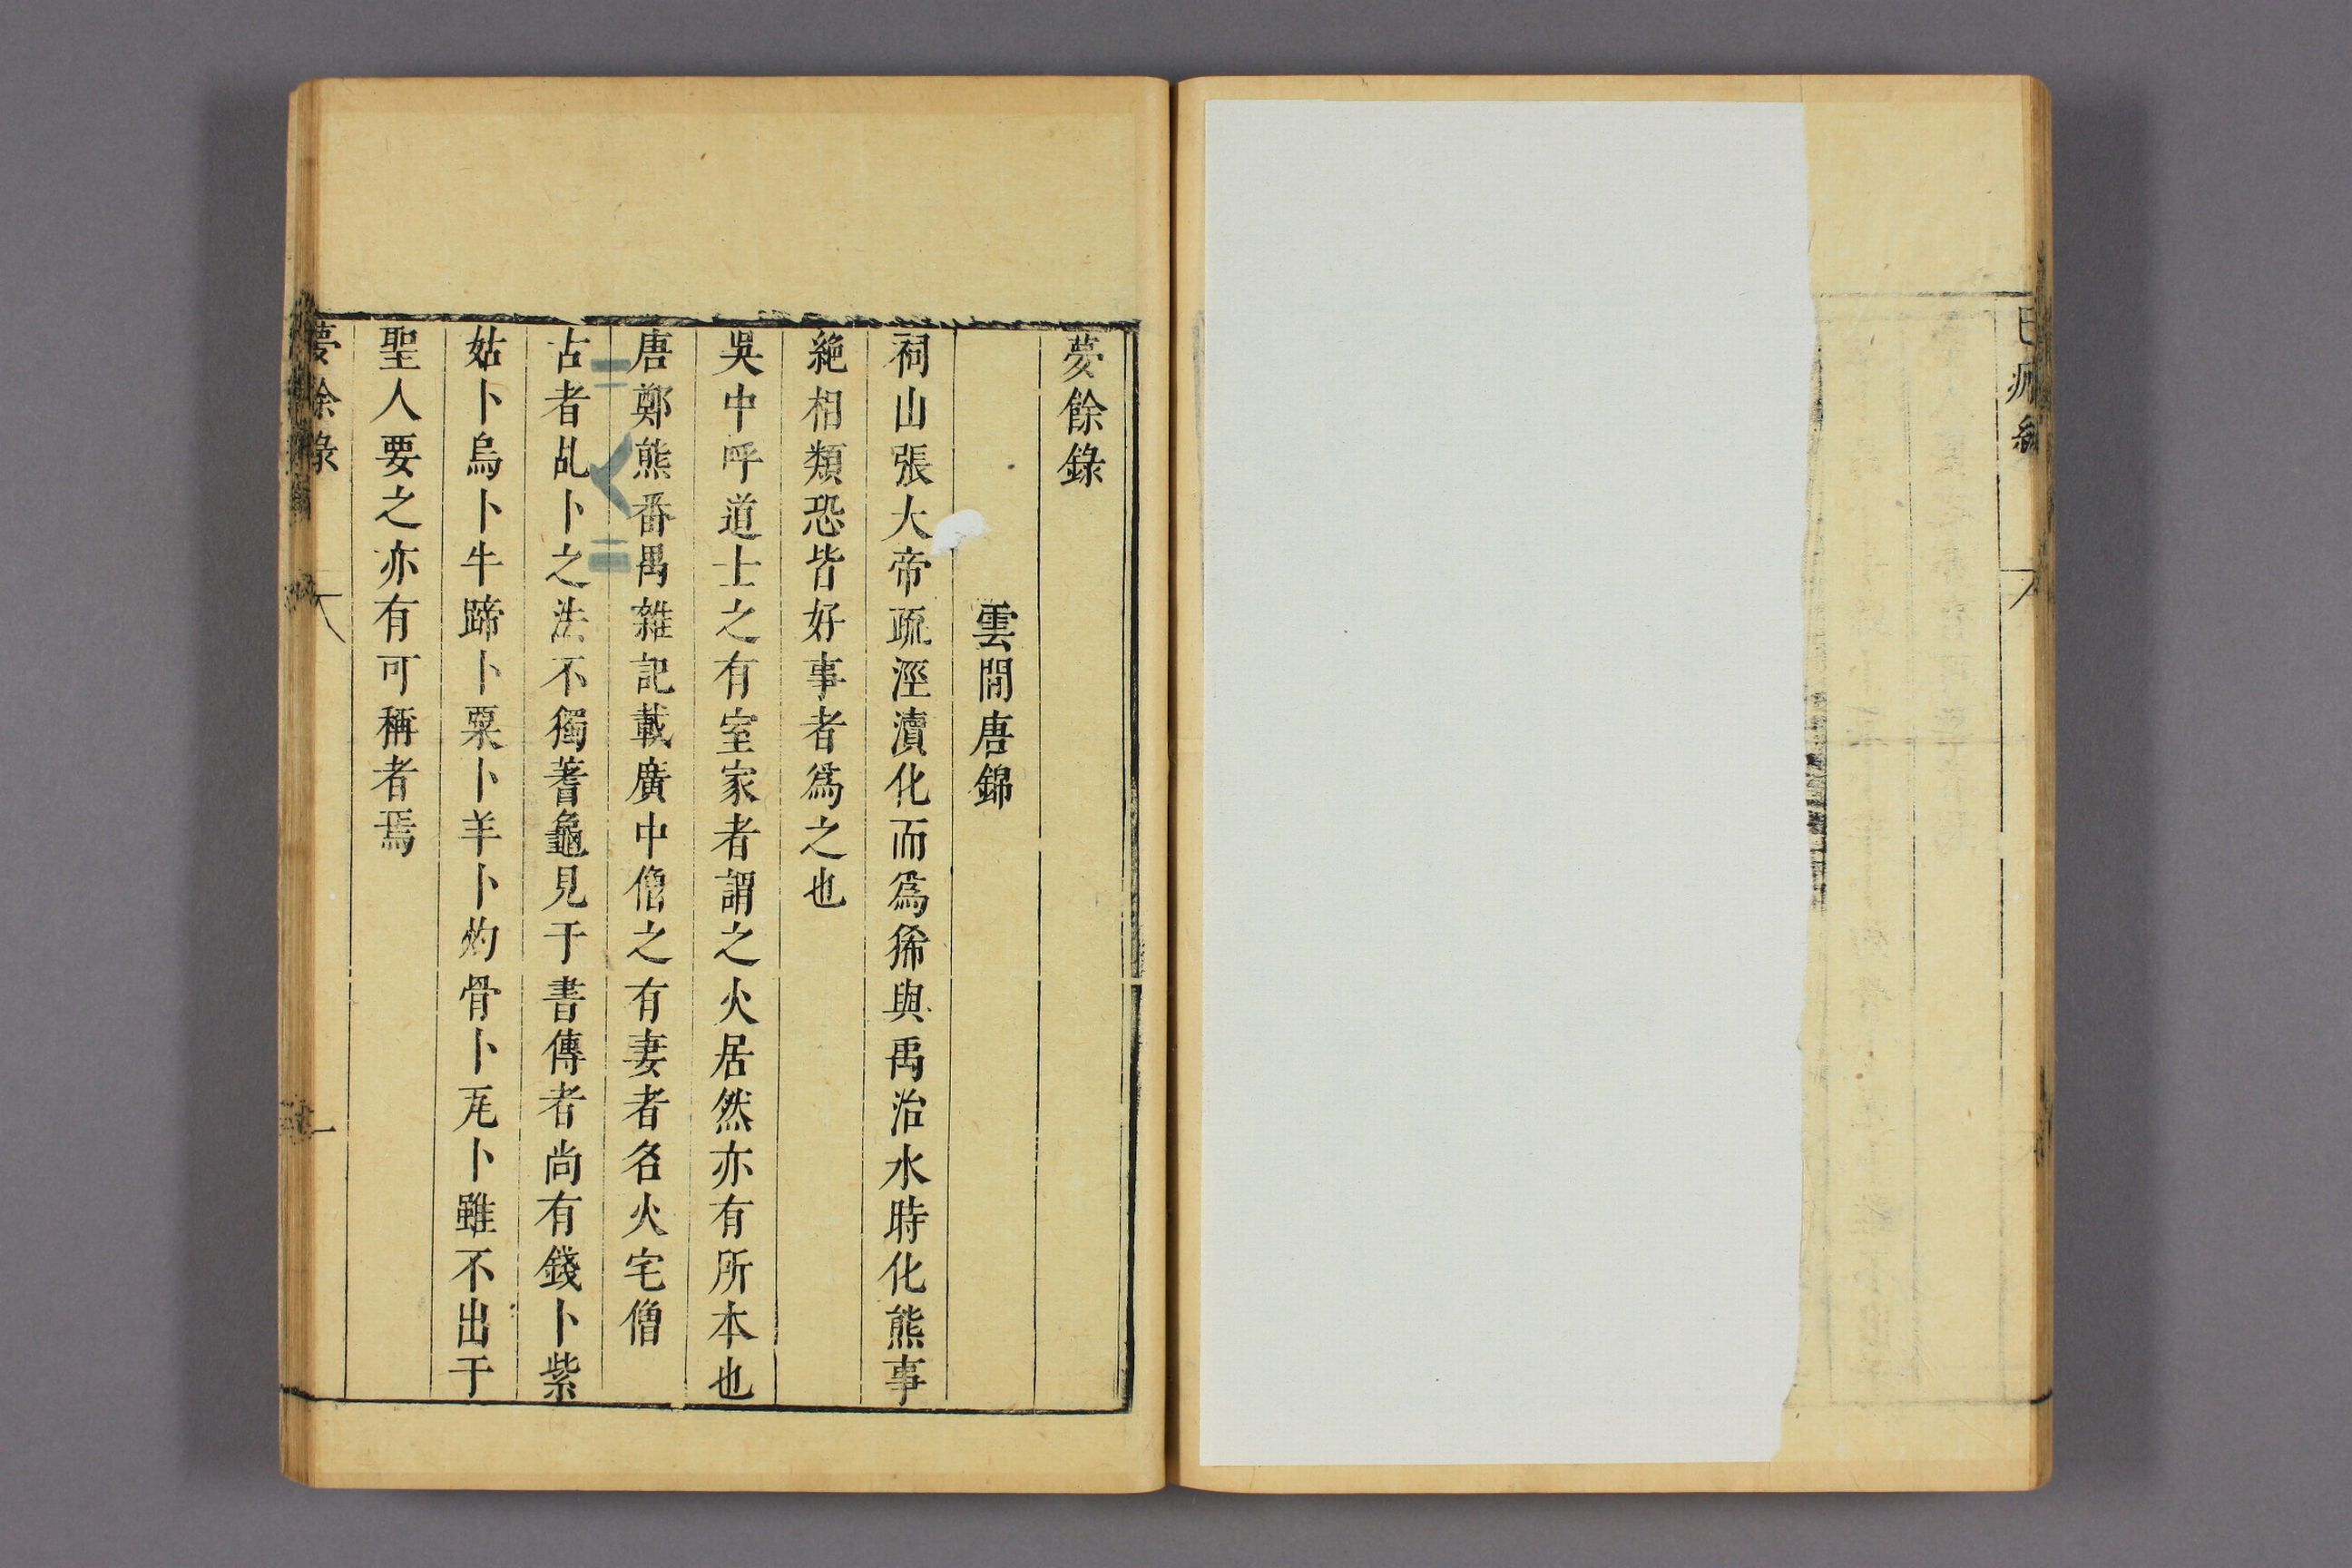 夢餘錄
雲間唐錦
祠山張大帝疏涇瀆化而爲豨與禹治水時化熊事
絶相類恐皆好事者爲之也
吳中呼道士之有室家者謂之火居然亦有所本也
唐鄭熊番禺雜記載廣中僧之有妻者名火宅僧
古者乩卜之法不獨蓍龜見于書傳者尚有錢卜紫
姑卜烏卜牛蹄卜粟卜羊卜灼骨卜瓦卜雖不出于
聖人要之亦有可稱者焉
夢餘錄
一